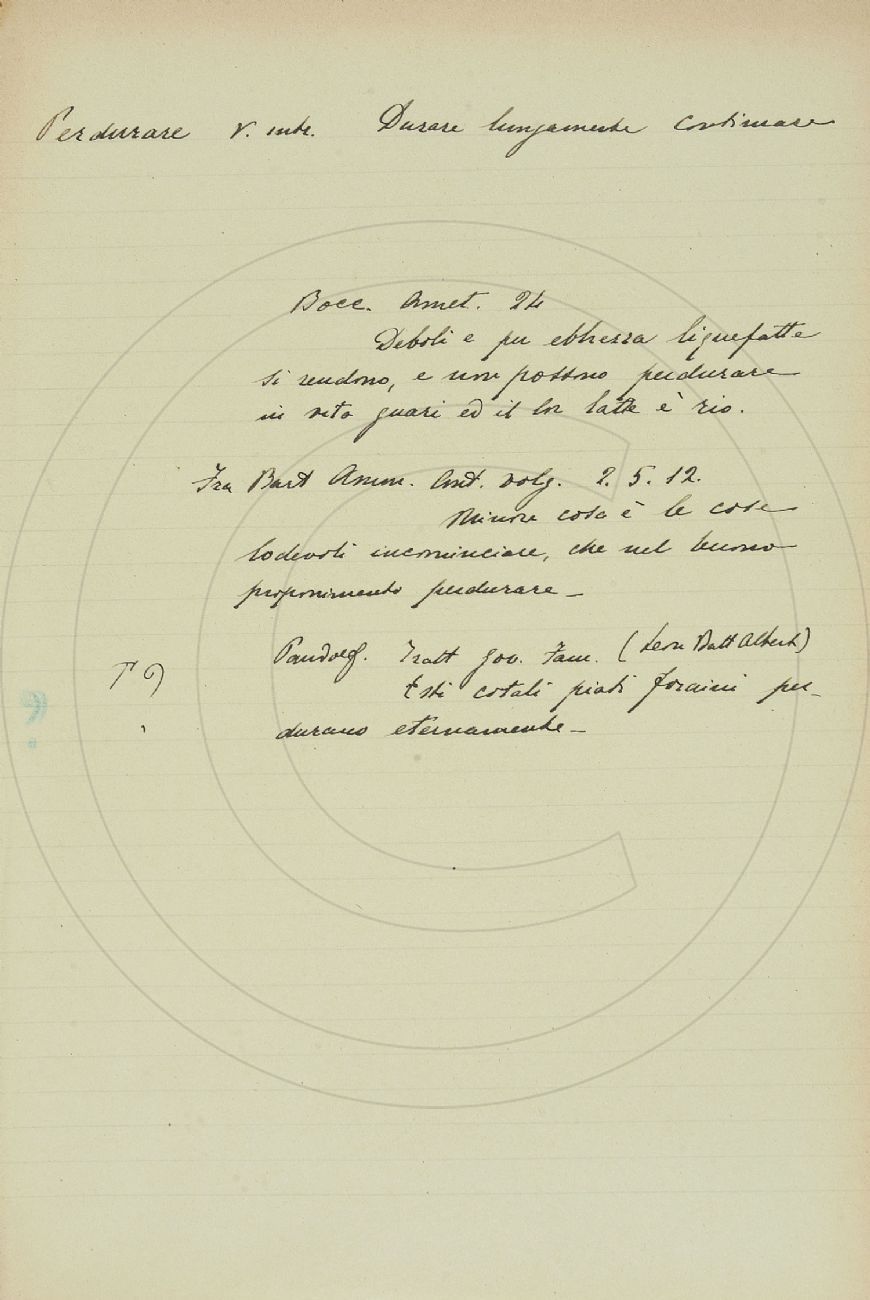 Perdurare v. intr. Durare lungamente continuare
Bocc. Amet. 24
Deboli e per ebbrezza liquefatte
si rendono, e non possono perdurare
in vita guari ed il lor latte è rio.
Fra Bart Amm. Ant. volg. 2. 5. 12.
Minore cosa è le cose
lodevoli incominciare, che nel buono
proponimento perdurare_
Pandolf. Tratt gov. Fam. (Leon Batt Alberti)
Esti cotali piati foraini per_
durano eternamente_